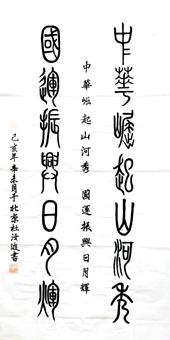 中華崛起山河秀
國運振興日月輝
中華崛起山河秀 國運振興日月輝
己亥年辛未月于北京杜海波書